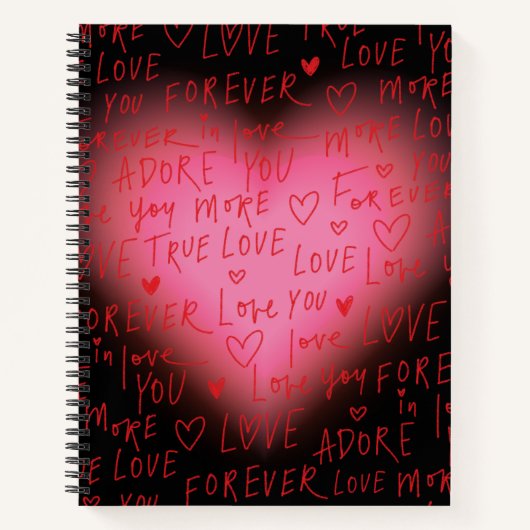 MORE LOVE TRUE LOVE You
LOVE MORE LOVE
YOU FOREVER MORE
FOREVER in love MORE LOV
ADORE YOU YOU
you MORE FOREVER
LOVE TRUE LOVE LOVE Love ADORE you
FOREVER Love YOU love LOVE
in love YOU Love you FOREVER
MORE LOVE ADORE in l
TRUE LOVE FOREVER LOVE MORE